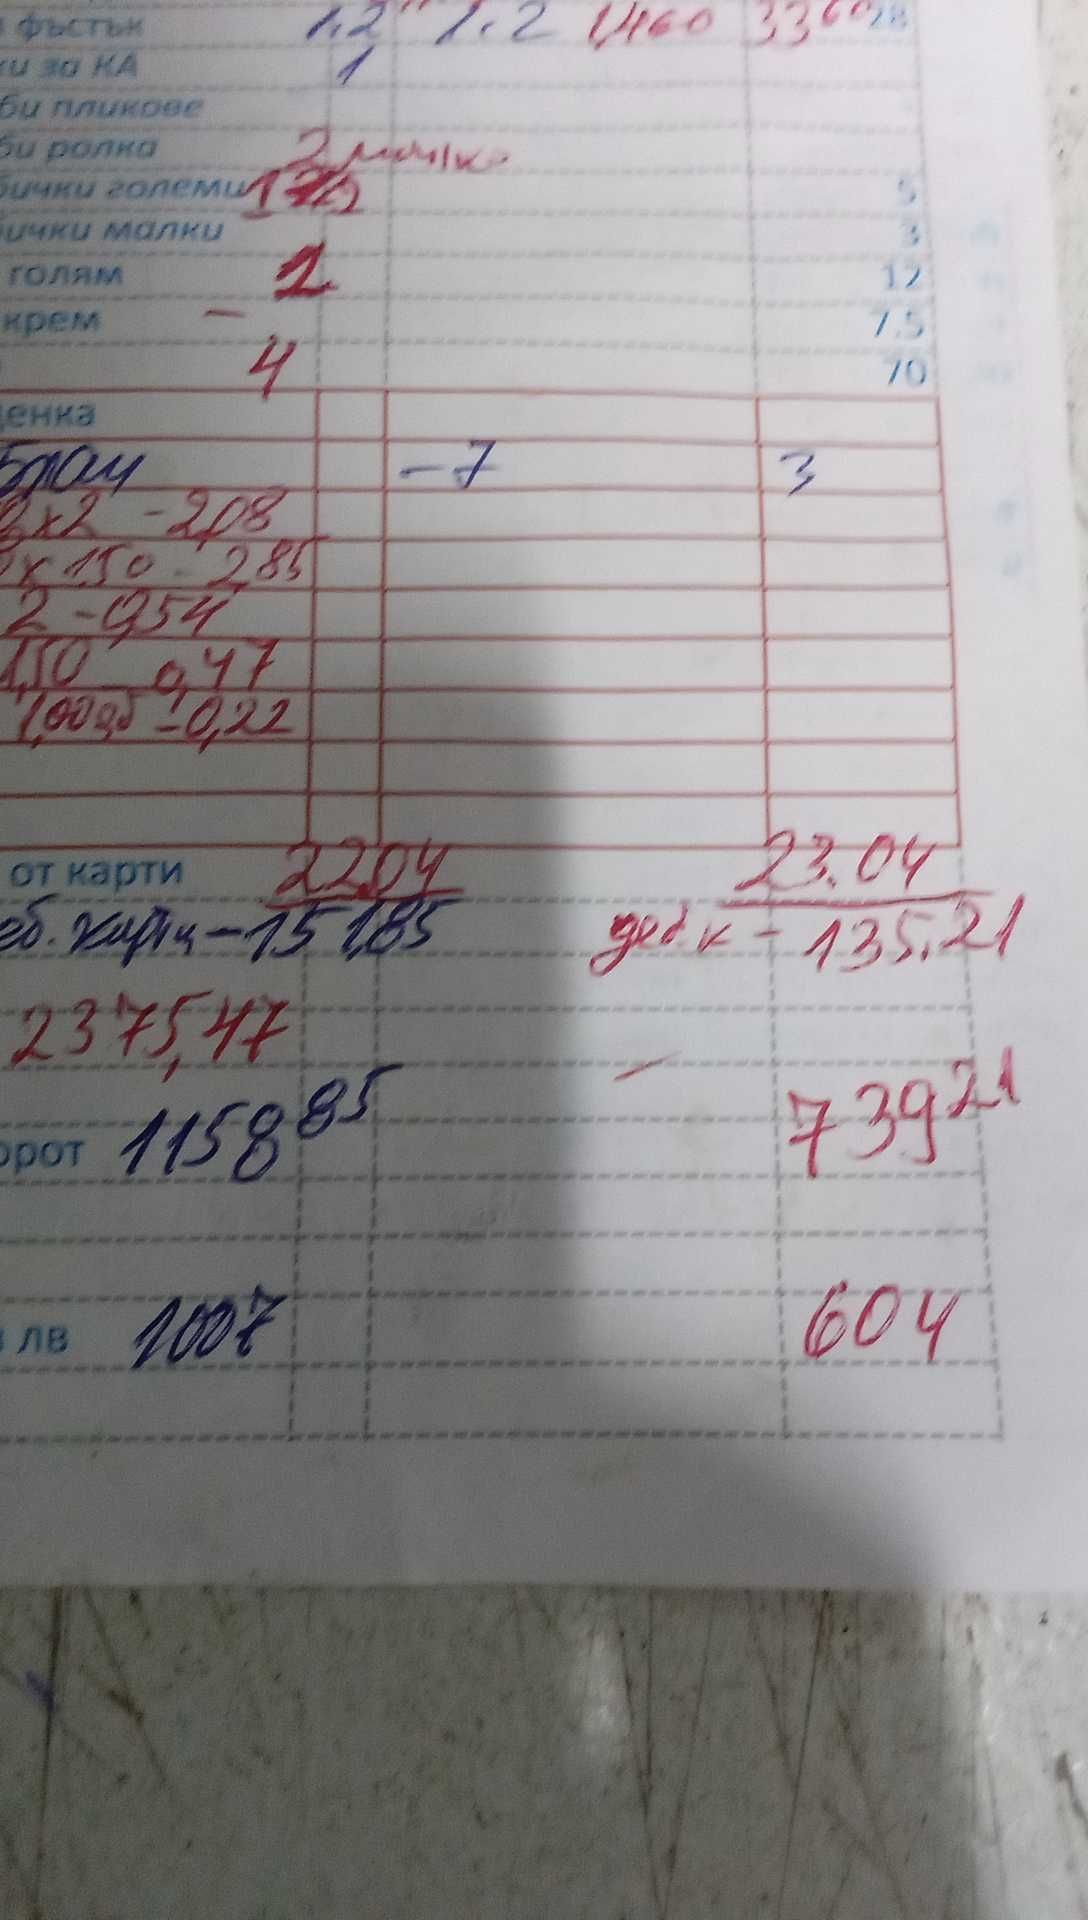 фъстък 1.2 1.2 1,460 33 60 28
ки за КА 1
би пликове
би ролка 2 малко
бички големи 5
ички малки 3
голям 1 12
крем - 7.5
4 70
ценка
-7 3
x2 - 2,08
x 1,50 - 2,85
2 - 0,54
1,50 0,47
- 0,22
от карти 22.04 23.04
еб. карти - 151,85 деб. к - 135.21
2375,47
орот 1158 85 739 21
лв 1007 604